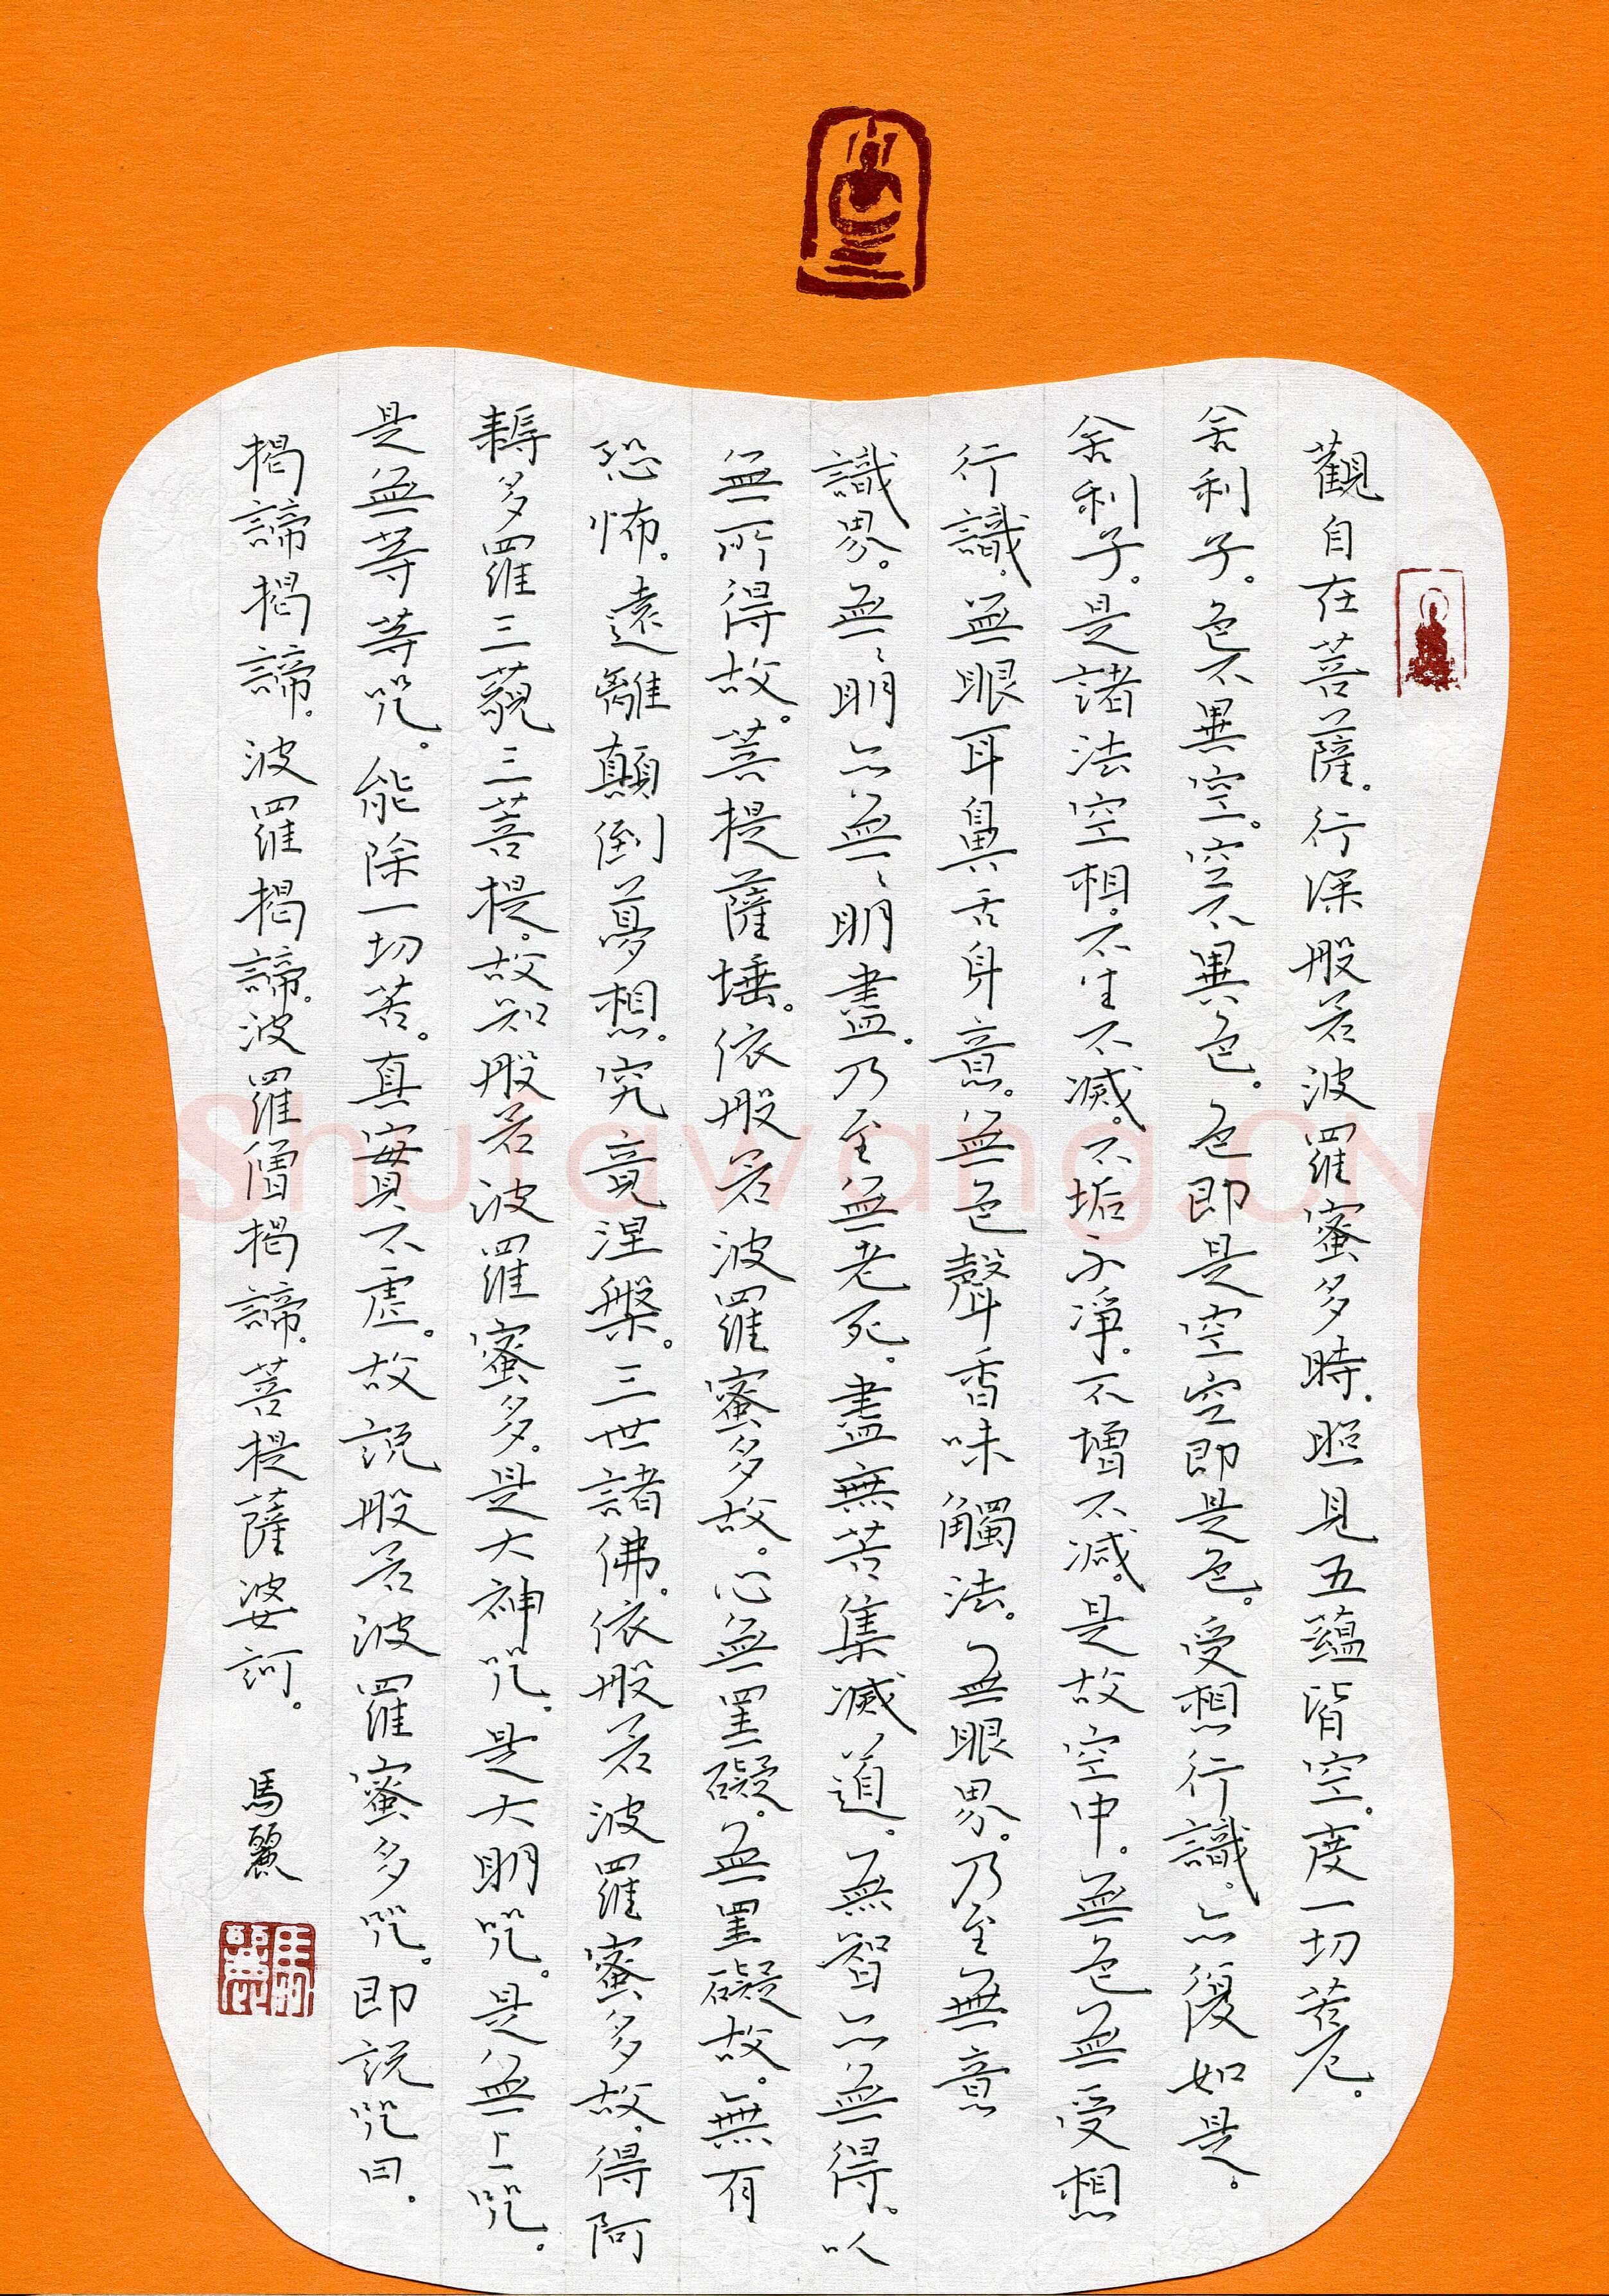 觀自在菩薩。行深般若波羅蜜多時。照見五蘊皆空。度一切苦厄。
舍利子。色不異空。空不異色。色即是空空即是色。受想行識。亦復如是。
舍利子。是諸法空相。不生不滅。不垢不淨。不增不減。是故空中。無色無受想
行識。無眼耳鼻舌身意。無色聲香味觸法。無眼界。乃至無意
識界。無〻明亦無〻明盡。乃至無老死。盡無苦集滅道。無智亦無得。以
無所得故。菩提薩埵。依般若波羅蜜多故。心無罣礙。無罣礙故。無有
恐怖。遠離顛倒夢想。究竟涅槃。三世諸佛。依般若波羅蜜多故。得阿
耨多羅三藐三菩提。故知般若波羅蜜多。是大神咒。是大明咒。是無上咒。
是無等等咒。能除一切苦。真實不虛。故說般若波羅蜜多咒。即說咒曰。
揭諦揭諦。波羅揭諦。波羅僧揭諦。菩提薩婆訶。 馬麗
馬麗
Shufawang.CN